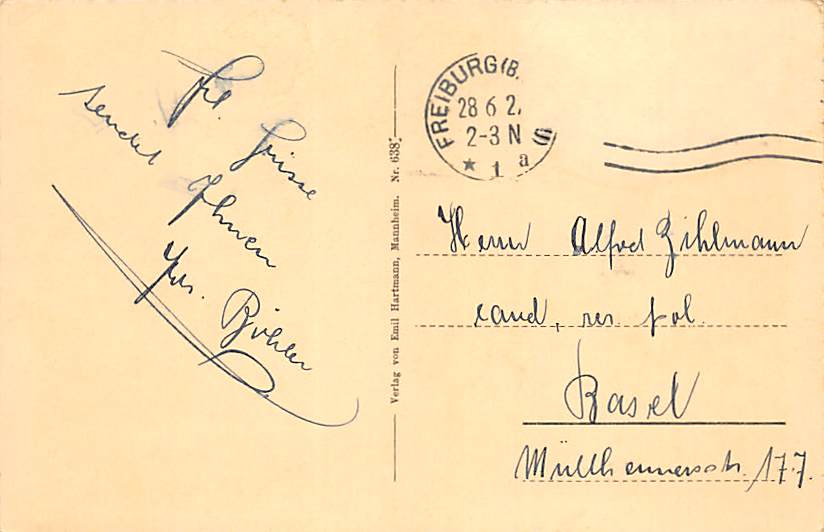 Frl. Grüsse
sendet Ihnen
Jos. Bühler
Verlag von Emil Hartmann, Mannheim. Nr. 638
FREIBURG (B.
28 6 2.
2-3 N
* 1 a
Herrn Alfred Zihlmann
cand. rer. pol.
Basel
Müllheimerstr. 177.